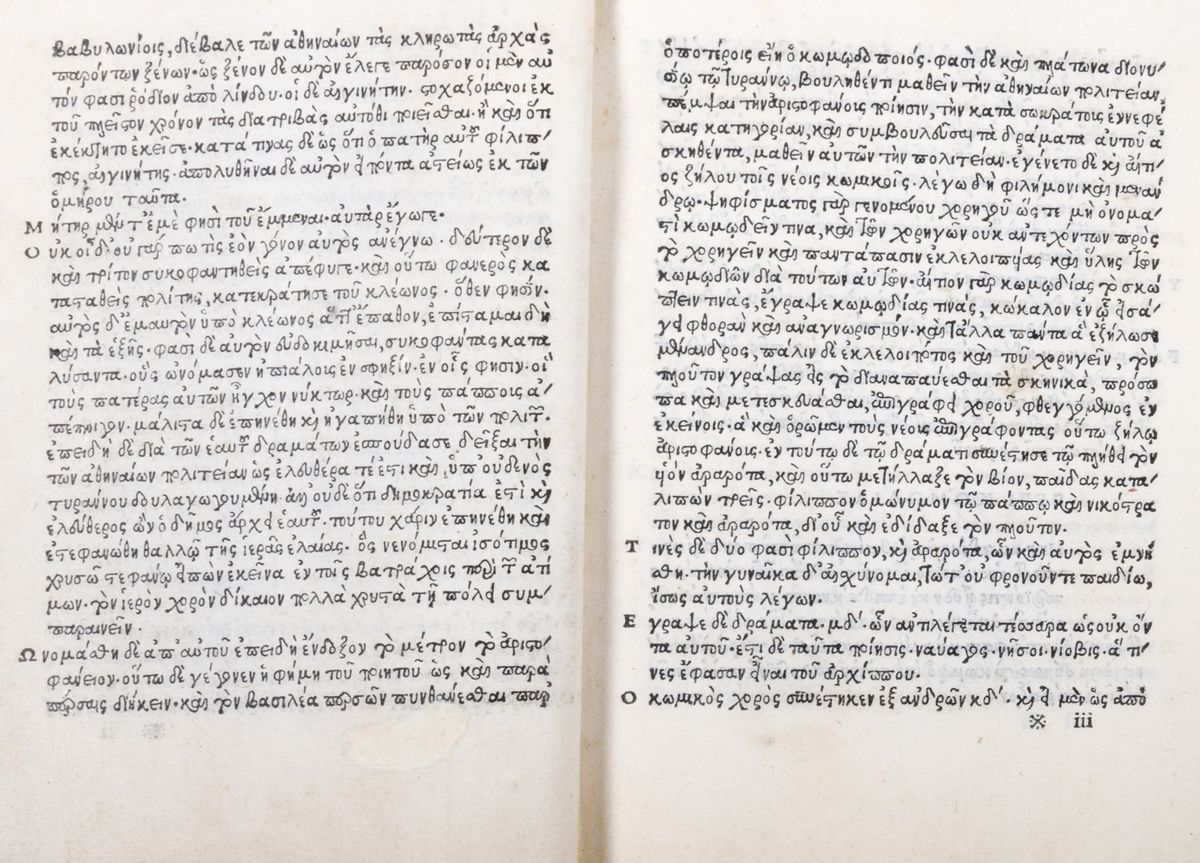 βαβυλωνίοις, διέβαλε τῶν ἀθηναίων τὰς κληρωτὰς ἀρχὰς
παρόντων ξένων· ὡς ξένον δὲ αὐτὸν ἔλεγε παρόσον οἱ μὲν αὐ
τόν φασι ῥόδιον ἀπὸ λίνδου· οἱ δὲ αἰγινήτην· στοχαζόμενοι ἐκ
τοῦ πλεῖστον χρόνον τὰς διατριβὰς αὐτόθι ποιεῖσθαι· ἢ καὶ ὅτι
ἐκέκτητο ἐκεῖσε· κατά τινας δὲ ὡς ὅτι ὁ πατὴρ αὐτοῦ φίλιπ-
πος, αἰγινήτης· ἀπολυθῆναι δὲ αὐτὸν εἰπόντα ἀστείως ἐκ τῶν
ὁμήρου ταῦτα.
Μήτηρ μέν τ' ἐμὲ φησὶ τοῦ ἔμμεναι· αὐτὰρ ἔγωγε·
Οὐκ οἶδ'· οὐ γάρ πω τὶς ἑὸν γόνον αὐτὸς ἀνέγνω· δεύτερον δὲ
καὶ τρίτον συκοφαντηθεὶς ἀπέφυγε· καὶ οὕτω φανερὸς κα
τασταθεὶς πολίτης, κατεκράτησε τοῦ κλέωνος· ὅθεν φησίν·
αὐτὸς δ' ἐμαυτὸν ὑπὸ κλέωνος ἅττ' ἔπαθον, ἐπίσταμαι δὴ
καὶ τὰ ἑξῆς· φασὶ δὲ αὐτὸν εὐδοκιμῆσαι, συκοφαντας κατα
λύσαντα· οὓς ὠνόμασεν ἠπιάλοις ἐν σφηξίν· ἐν οἷς φησιν· οἳ
τοὺς πατέρας αὐτῶν ἦγχον νύκτωρ· καὶ τοὺς πάπποις ἀ-
πέπνιγον· μάλιστα δὲ ἐπηνέθη κὶ ἠγαπήθη ὑπὸ τῶν πολιτ.
ἐπειδὴ δὲ διὰ τῶν ἑαυτοῦ δραμάτων ἐσπούδασε δεῖξαι τὴν
τῶν ἀθηναίων πολιτείαν ὡς ἐλευθέρα τέ ἐστι καὶ ὑπ' οὐδενὸς
τυράννου δουλαγωγουμένη ἀλλ' οὐδὲ ὅτι δημοκρατία ἐστὶ κὶ
ἐλεύθερος ὢν ὁ δῆμος ἄρχει ἑαυτοῦ. τούτου χάριν ἐπηνέθη καὶ
ἐστεφανώθη θαλλῷ τῆς ἱερᾶς ἐλαίας· ὃς νενόμισται ἰσότιμος
χρυσῷ στεφάνῳ εἰπὼν ἐκεῖνα ἐν τοῖς βατράχοις περὶ τῶν ἀτί
μων· τὸν ἱερὸν χορὸν δίκαιον πολλὰ χρηστὰ τῇ πόλει συμ-
παραινεῖν.
Ὠνομάσθη δὲ ἀπ' αὐτοῦ ἐπειδὴ ἔνδοξον τὸ μέτρον τὸ ἀριστο-
φάνειον· οὕτω δὲ γέγονεν ἡ φήμη τοῦ ποιητοῦ ὡς καὶ παρὰ
πέρσαις διήκειν· καὶ τὸν βασιλέα περσῶν πυνθάνεσθαι παρ'
ὁποτέροις εἴη ὁ κωμῳδοποιός· φασὶ δὲ καὶ πλάτωνα διονυ-
σίῳ τῷ τυράννῳ, βουληθέντι μαθεῖν τὴν ἀθηναίων πολιτείαν,
πέμψαι τὴν ἀριστοφάνοις ποίησιν, τὴν κατὰ σωκράτοις ἐν νεφέ-
λαις κατηγορίαν, καὶ συμβουλεῦσαι τὰ δράματα αὐτοῦ ἀ
σκηθέντα, μαθεῖν αὐτῶν τὴν πολιτείαν· ἐγένετο δὲ κὶ αἴτι-
ος ζήλου τοῖς νέοις κωμικοῖς· λέγω δὴ φιλήμονι καὶ μενάν-
δρῳ· ψηφίσματος γὰρ γενομένου χορηγοῦ ὥστε μὴ ὀνομα-
στὶ κωμῳδεῖν τινα, καὶ τῶν χορηγῶν οὐκ ἀντεχόντων πρὸς
τὸ χορηγεῖν καὶ παντάπασιν ἐκλελοιπυίας καὶ ὕλης τῶν
κωμῳδιῶν διὰ τούτων αὐτῶν· αἴτιον γὰρ κωμῳδίας τὸ σκώ
πτειν τινὰς, ἔγραψε κωμῳδίας τινάς, κώκαλον ἐν ᾧ εἰσά-
γει φθορὰν καὶ ἀναγνωρισμόν· καὶ τἄλλα πάντα ἃ ἐζήλωσε
μένανδρος, πάλιν δὲ ἐκλελοιπότος καὶ τοῦ χορηγεῖν, τὸν
πλοῦτον γράψας εἰς τὸ διαναπαύεσθαι τὰ σκηνικὰ, πρόσω
πα καὶ μετεσκευάσθαι, ἐπιγράφει χοροῦ, φθεγγόμενος ἐν
ἐκείνοις· ἃ καὶ ὁρῶμεν τοὺς νέοις ἐπιγράφοντας οὕτω ζήλῳ
ἀριστοφάνοις· ἐν τούτῳ δὲ τῷ δράματι συνέστησε τῷ πλήθει τὸν
υἱὸν ἀραρότα, καὶ οὕτω μετήλλαξε τὸν βίον, παῖδας κατα-
λιπὼν τρεῖς· φίλιππον ὁμώνυμον τῷ πάππῳ καὶ νικόστρα
τον καὶ ἀραρότα, δι' οὗ καὶ ἐδίδαξε τὸν πλοῦτον.
Τινὲς δὲ δύο φασὶ φίλιππον, κὶ ἀραρότα, ὧν καὶ αὐτὸς ἐμνή
σθη· τὴν γυναῖκα δ' αἰσχύνομαι, τώτ' οὐ φρονοῦντε παιδίω,
ἴσως αὐτοὺς λέγων.
Ἔγραψε δὲ δράματα· μδ'· ὧν ἀντιλέγεται τέσσαρα ὡς οὐκ ὄν
τα αὐτοῦ· ἔστι δὲ ταῦτα ποίησις· ναύαγος· νῆσοι· νίοβις· ἅ τι-
νες ἔφασαν εἶναι τοῦ ἀρχίππου.
Ὁ κωμικὸς χορὸς συνέστηκεν ἐξ ἀνδρῶν κδ'· κὶ εἰ μὲν ὡς ἀπὸ
※ iii